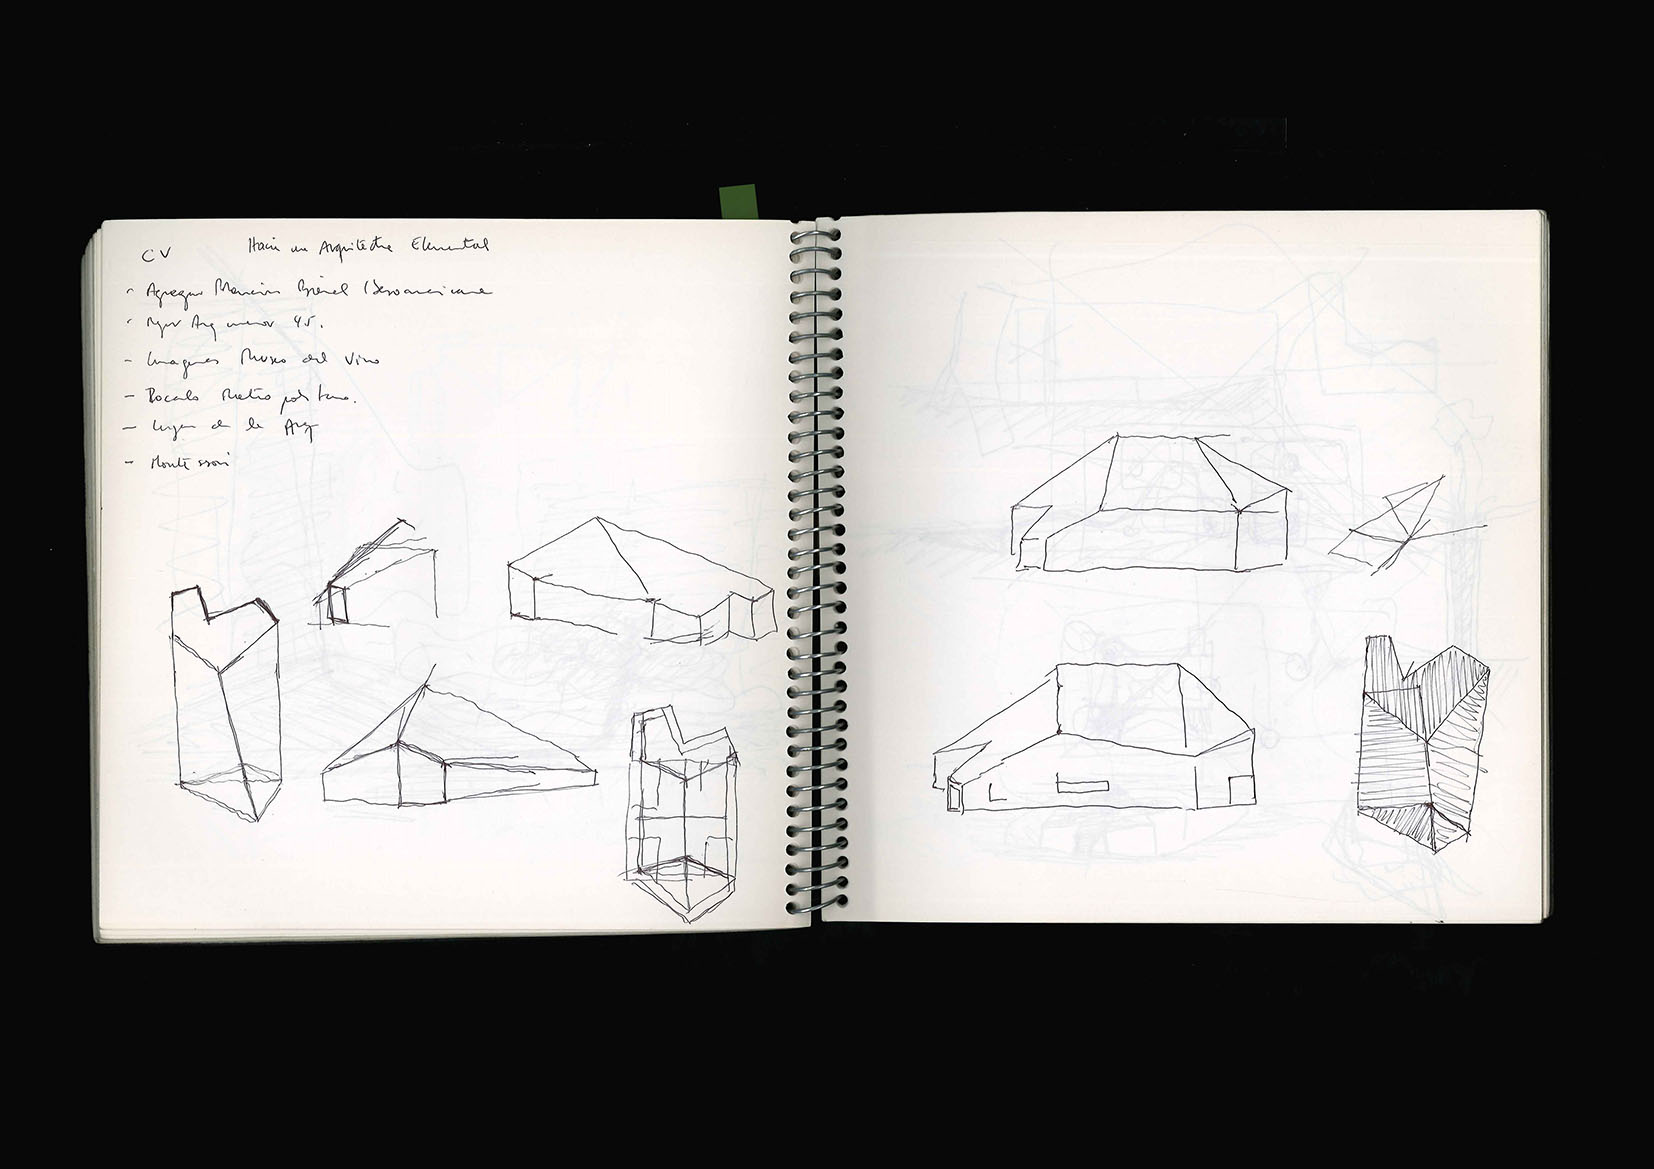 CV Hacia un Arquitectura Elemental
- Agregar Mención Bienal Iberoamericana
- Mejor Arq menor 45.
- Imagenes Museo del Vino
- Metropolitano.
- Lugar de la Arq
- Montessori